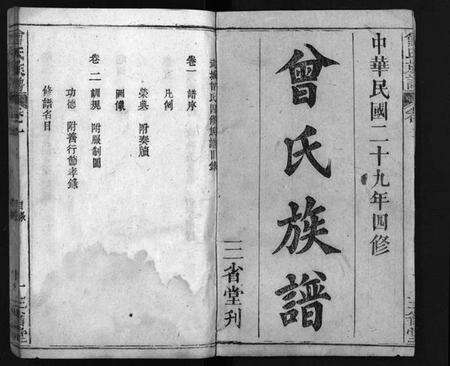 中華民國二十九年四修
曾氏族譜
三省堂刊
曾氏四修族譜目錄
卷一 譜序
凡例
榮典 附奏牘
圖像
卷二 訓規 附服制圖
功德 附善行節孝錄
修譜名目